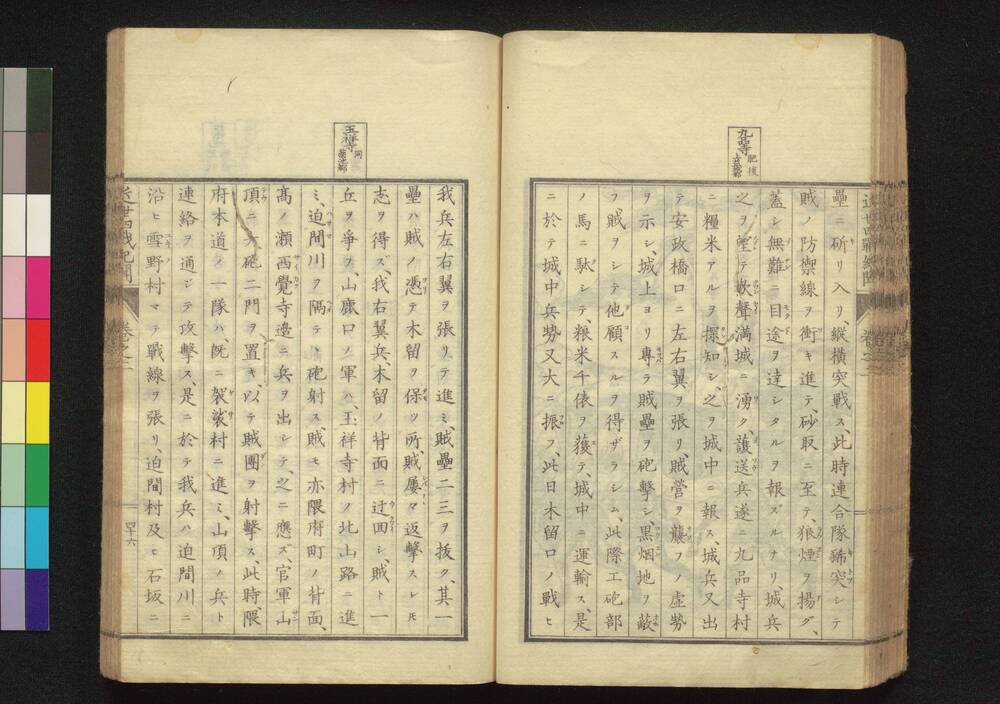 九品寺 肥後
壘ニ斫リ入リ、縱橫突戰ス、此時連合隊豨突シテ
賊ノ防禦線ヲ衝キ進テ、砂取ニ至テ、狼煙ヲ揚グ、
蓋シ無難ニ目途ヲ達シタルヲ報ズルナリ、城兵
之ヲ望テ歓聲滿城ニ湧ク、護送兵遂ニ九品寺村
ニ糧米アルヲ探知シ、之ヲ城中ニ報ス、城兵又出
テ安政橋口ニ左右翼ヲ張リ、賊營ヲ襲フノ虛勢
ヲ示シ、城上ヨリ專ラ賊壘ヲ砲擊シ、黒烟地ヲ蔽
フ、賊ヲシテ他顧スルヲ得ザラシム、此際工砲部
ノ馬ニ駄シテ、粮米千俵ヲ獲テ、城中ニ運輸ス、是
ニ於テ城中兵勢又大ニ振フ、此日木留口ノ戰ヒ
玉祥寺 同
我兵左右翼ヲ張リテ進ミ、賊壘二三ヲ拔ク、其一
壘ハ賊ノ憑テ木留ヲ保ツ所、賊屢々返擊スレ𪜈
志ヲ得ズ、我右翼兵、木留ノ背面ニ迂回シ、賊ト一
丘ヲ爭フ、山鹿口ノ軍ハ、玉祥寺村ノ北山路ニ進
ミ、迫間川ヲ隔テヽ砲射ス、賊モ亦隈府町ノ背面、
髙ノ瀬西覺寺邉ニ兵ヲ出シテ、之ニ應ズ、官軍山
頂ニ大砲二門ヲ置キ、以テ賊團ヲ射擊ス、此時、隈
府本道ノ一隊ハ、既ニ袈裟村ニ進ミ、山頂ノ兵ト
連絡ヲ通シテ攻擊ス、是ニ於テ我兵ハ迫間川ニ
沿ヒ雪野村マテ戰線ヲ張リ、迫間村及ヒ石坂ニ
近世四戰紀聞 卷之二 四十六